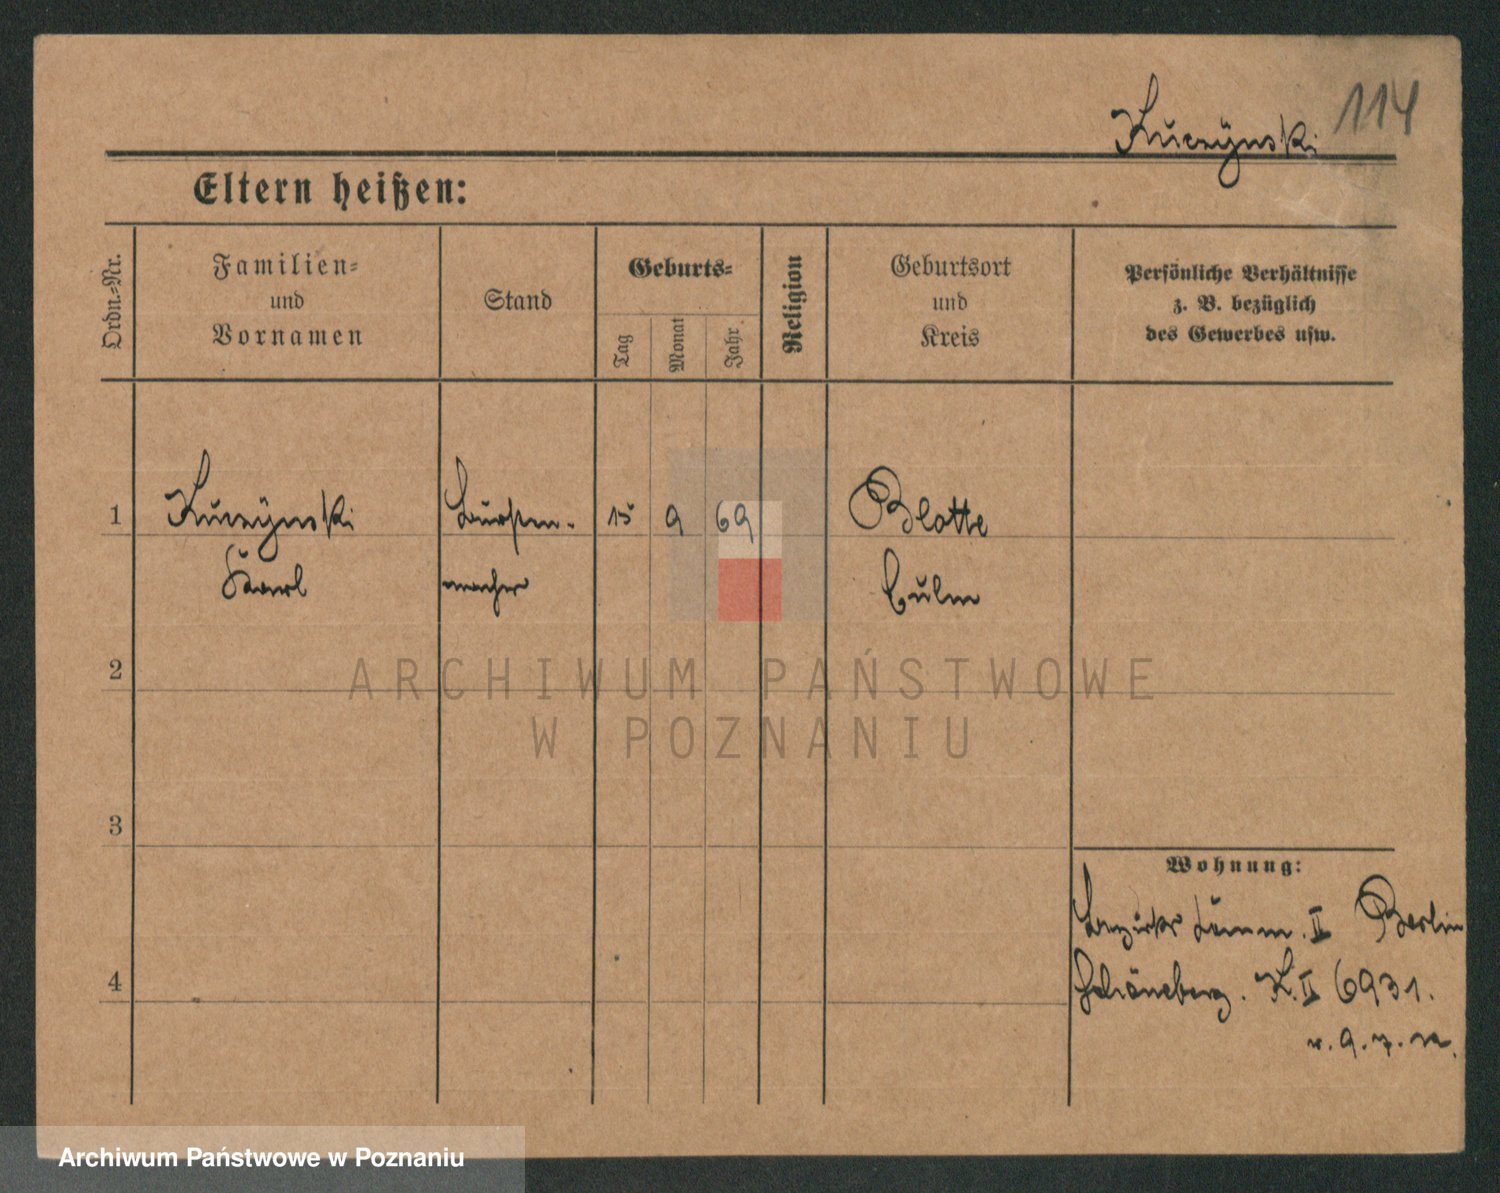 114
Kuczynski
Eltern heißen:
Ordn.-Nr.
Familien-
und
Vornamen
Stand
Geburts-
Tag
Monat
Jahr
Religion
Geburtsort
und
Kreis
Persönliche Verhältnisse
z. B. bezüglich
des Gewerbes usw.
1
Kuczynski
Bürsten-
15
9
69
Blotte
Karl
macher
Culm
2
ARCHIWUM PAŃSTWOWE
W POZNANIU
3
Wohnung:
Bezirks II Berlin
4
Schöneberg. K. II 6931.
v. 9. 7.
Archiwum Państwowe w Poznaniu